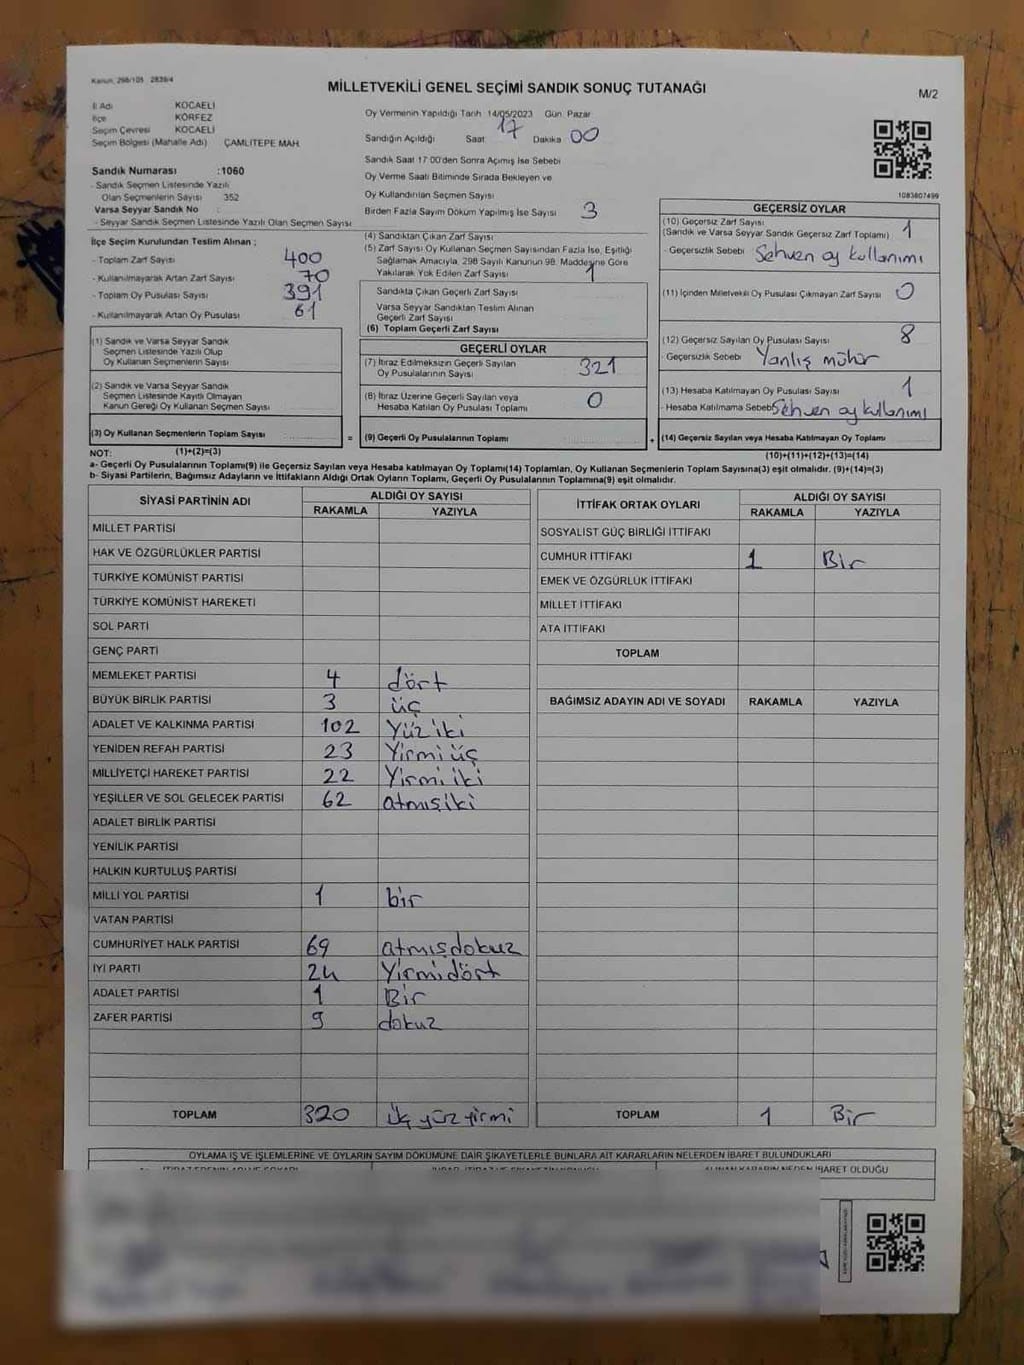 Kanun: 298/105 2839/4
MİLLETVEKİLİ GENEL SEÇİMİ SANDIK SONUÇ TUTANAĞI
M/2
İl Adı KOCAELİ
İlçe KÖRFEZ
Seçim Çevresi KOCAELİ
Seçim Bölgesi (Mahalle Adı) ÇAMLITEPE MAH.
Sandık Numarası :1060
- Sandık Seçmen Listesinde Yazılı
Olan Seçmenlerin Sayısı 352
Varsa Seyyar Sandık No :
- Seyyar Sandık Seçmen Listesinde Yazılı Olan Seçmen Sayısı
Oy Vermenin Yapıldığı Tarih 14/05/2023 Gün Pazar
Sandığın Açıldığı Saat 17 Dakika 00
Sandık Saat 17:00'den Sonra Açımış İse Sebebi
Oy Verme Saati Bitiminde Sırada Bekleyen ve
Oy Kullandırılan Seçmen Sayısı
Birden Fazla Sayım Döküm Yapılmış İse Sayısı 3
1083807499
İlçe Seçim Kurulundan Teslim Alınan ;
- Toplam Zarf Sayısı 400
- Kullanılmayarak Artan Zarf Sayısı 70
- Toplam Oy Pusulası Sayısı 391
- Kullanılmayarak Artan Oy Pusulası 61
(1) Sandık ve Varsa Seyyar Sandık
Seçmen Listesinde Yazılı Olup
Oy Kullanan Seçmen Sayısı
(2) Sandık ve Varsa Seyyar Sandık
Seçmen Listesinde Kayıtlı Olmayan
Kanun Gereği Oy Kullanan Seçmen Sayısı
(3) Oy Kullanan Seçmenlerin Toplam Sayısı
(4) Sandıktan Çıkan Zarf Sayısı
(5) Zarf Sayısı Oy Kullanan Seçmen Sayısından Fazla İse, Eşitliği
Sağlamak Amacıyla, 298 Sayılı Kanunun 98. Maddesine Göre
Yakılarak Yok Edilen Zarf Sayısı 1
Sandıkta Çıkan Geçerli Zarf Sayısı
Varsa Seyyar Sandıktan Teslim Alınan
Geçerli Zarf Sayısı
(6) Toplam Geçerli Zarf Sayısı
GEÇERLİ OYLAR
(7) İtiraz Edilmeksizin Geçerli Sayılan
Oy Pusulalarının Sayısı 321
(8) İtiraz Üzerine Geçerli Sayılan veya
Hesaba Katılan Oy Pusulası Toplamı 0
= (9) Geçerli Oy Pusulalarının Toplamı
GEÇERSİZ OYLAR
(10) Geçersiz Zarf Sayısı
(Sandık ve Varsa Seyyar Sandık Geçersiz Zarf Toplamı) 1
- Geçersizlik Sebebi Sehven oy kullanımı
(11) İçinden Milletvekili Oy Pusulası Çıkmayan Zarf Sayısı 0
(12) Geçersiz Sayılan Oy Pusulası Sayısı 8
- Geçersizlik Sebebi Yanlış mühür
(13) Hesaba Katılmayan Oy Pusulası Sayısı 1
- Hesaba Katılmama Sebebi Sehven oy kullanımı
+ (14) Geçersiz Sayılan veya Hesaba Katılmayan Oy Toplamı
NOT: (1)+(2)=(3) (10)+(11)+(12)+(13)=(14)
a- Geçerli Oy Pusulalarının Toplamı(9) ile Geçersiz Sayılan veya Hesaba katılmayan Oy Toplamı(14) Toplamları, Oy Kullanan Seçmenlerin Toplam Sayısına(3) eşit olmalıdır. (9)+(14)=(3)
b- Siyasi Partilerin, Bağımsız Adayların ve İttifakların Aldığı Ortak Oyların Toplamı, Geçerli Oy Pusulalarının Toplamına(9) eşit olmalıdır.
SİYASİ PARTİNİN ADI ALDIĞI OY SAYISI
RAKAMLA YAZIYLA
MİLLET PARTİSİ
HAK VE ÖZGÜRLÜKLER PARTİSİ
TÜRKİYE KOMÜNİST PARTİSİ
TÜRKİYE KOMÜNİST HAREKETİ
SOL PARTİ
GENÇ PARTİ
MEMLEKET PARTİSİ 4 dört
BÜYÜK BİRLİK PARTİSİ 3 üç
ADALET VE KALKINMA PARTİSİ 102 Yüz iki
YENİDEN REFAH PARTİSİ 23 Yirmi üç
MİLLİYETÇİ HAREKET PARTİSİ 22 Yirmi iki
YEŞİLLER VE SOL GELECEK PARTİSİ 62 atmışiki
ADALET BİRLİK PARTİSİ
YENİLİK PARTİSİ
HALKIN KURTULUŞ PARTİSİ
MİLLİ YOL PARTİSİ 1 bir
VATAN PARTİSİ
CUMHURİYET HALK PARTİSİ 69 atmışdokuz
İYİ PARTİ 24 Yirmidört
ADALET PARTİSİ 1 Bir
ZAFER PARTİSİ 9 dokuz
TOPLAM 320 Üç yüz yirmi
İTTİFAK ORTAK OYLARI ALDIĞI OY SAYISI
RAKAMLA YAZIYLA
SOSYALİST GÜÇ BİRLİĞİ İTTİFAKI
CUMHUR İTTİFAKI 1 Bir
EMEK VE ÖZGÜRLÜK İTTİFAKI
MİLLET İTTİFAKI
ATA İTTİFAKI
TOPLAM
BAĞIMSIZ ADAYIN ADI VE SOYADI RAKAMLA YAZIYLA
TOPLAM 1 Bir
OYLAMA İŞ VE İŞLEMLERİNE VE OYLARIN SAYIM DÖKÜMÜNE DAİR ŞİKAYETLERLE BUNLARA AİT KARARLARIN NELERDEN İBARET BULUNDUKLARI